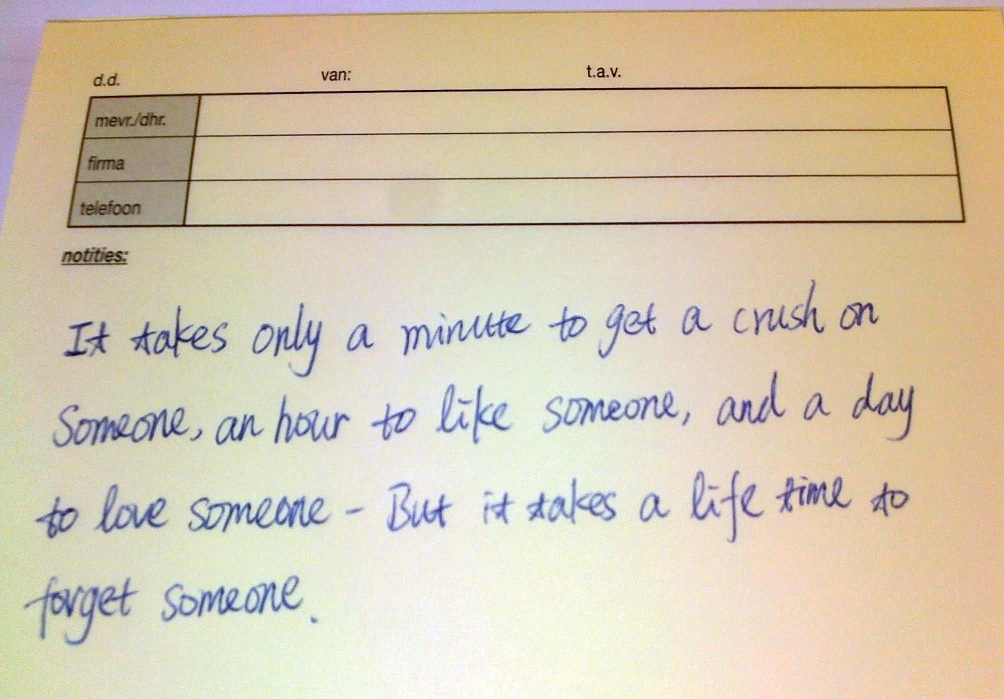 d.d. van: t.a.v.
mevr./dhr.
firma
telefoon
notities:
It takes only a minute to get a crush on
Someone, an hour to like someone, and a day
to love someone - But it takes a life time to
forget someone.